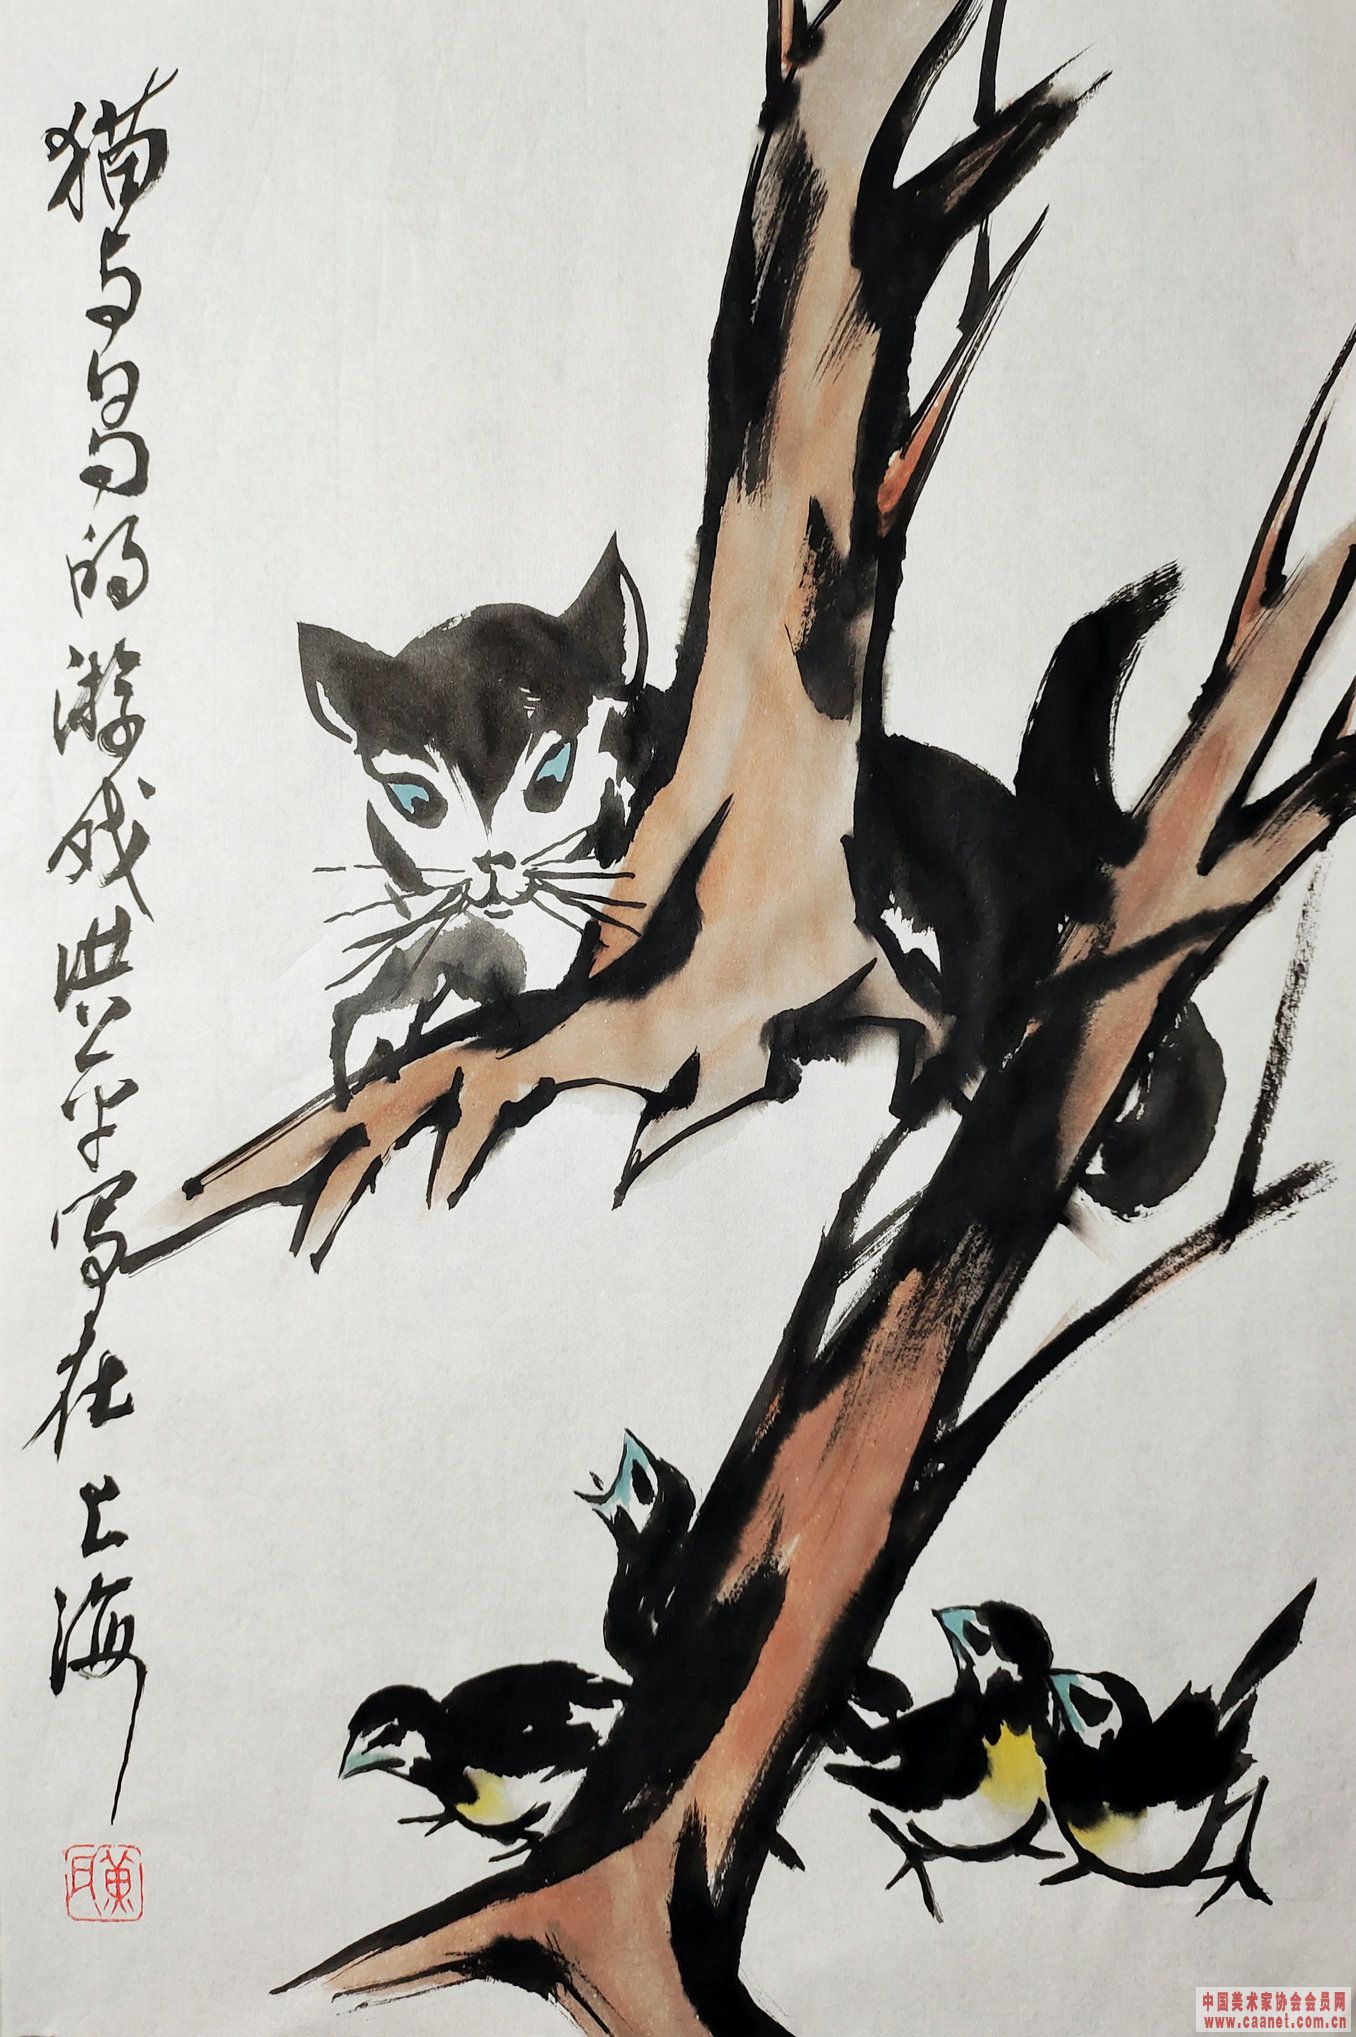 猫与鸟的游戏洪公平写在上海
中国美术家协会会员网
www.caanet.com.cn